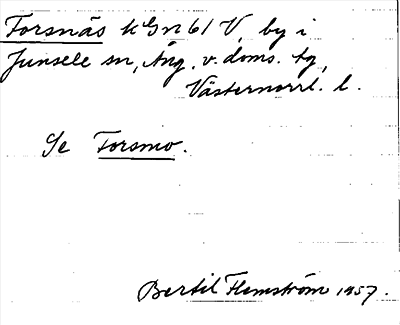 Forsnäs kGn 61 V, by i
Junsele sn, Ång. v. doms. tg,
Västernorrl. l.
Se Forsmo.
Bertil Flemström 1957.